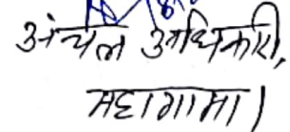 अंचल अधिकारी,
महागामा।